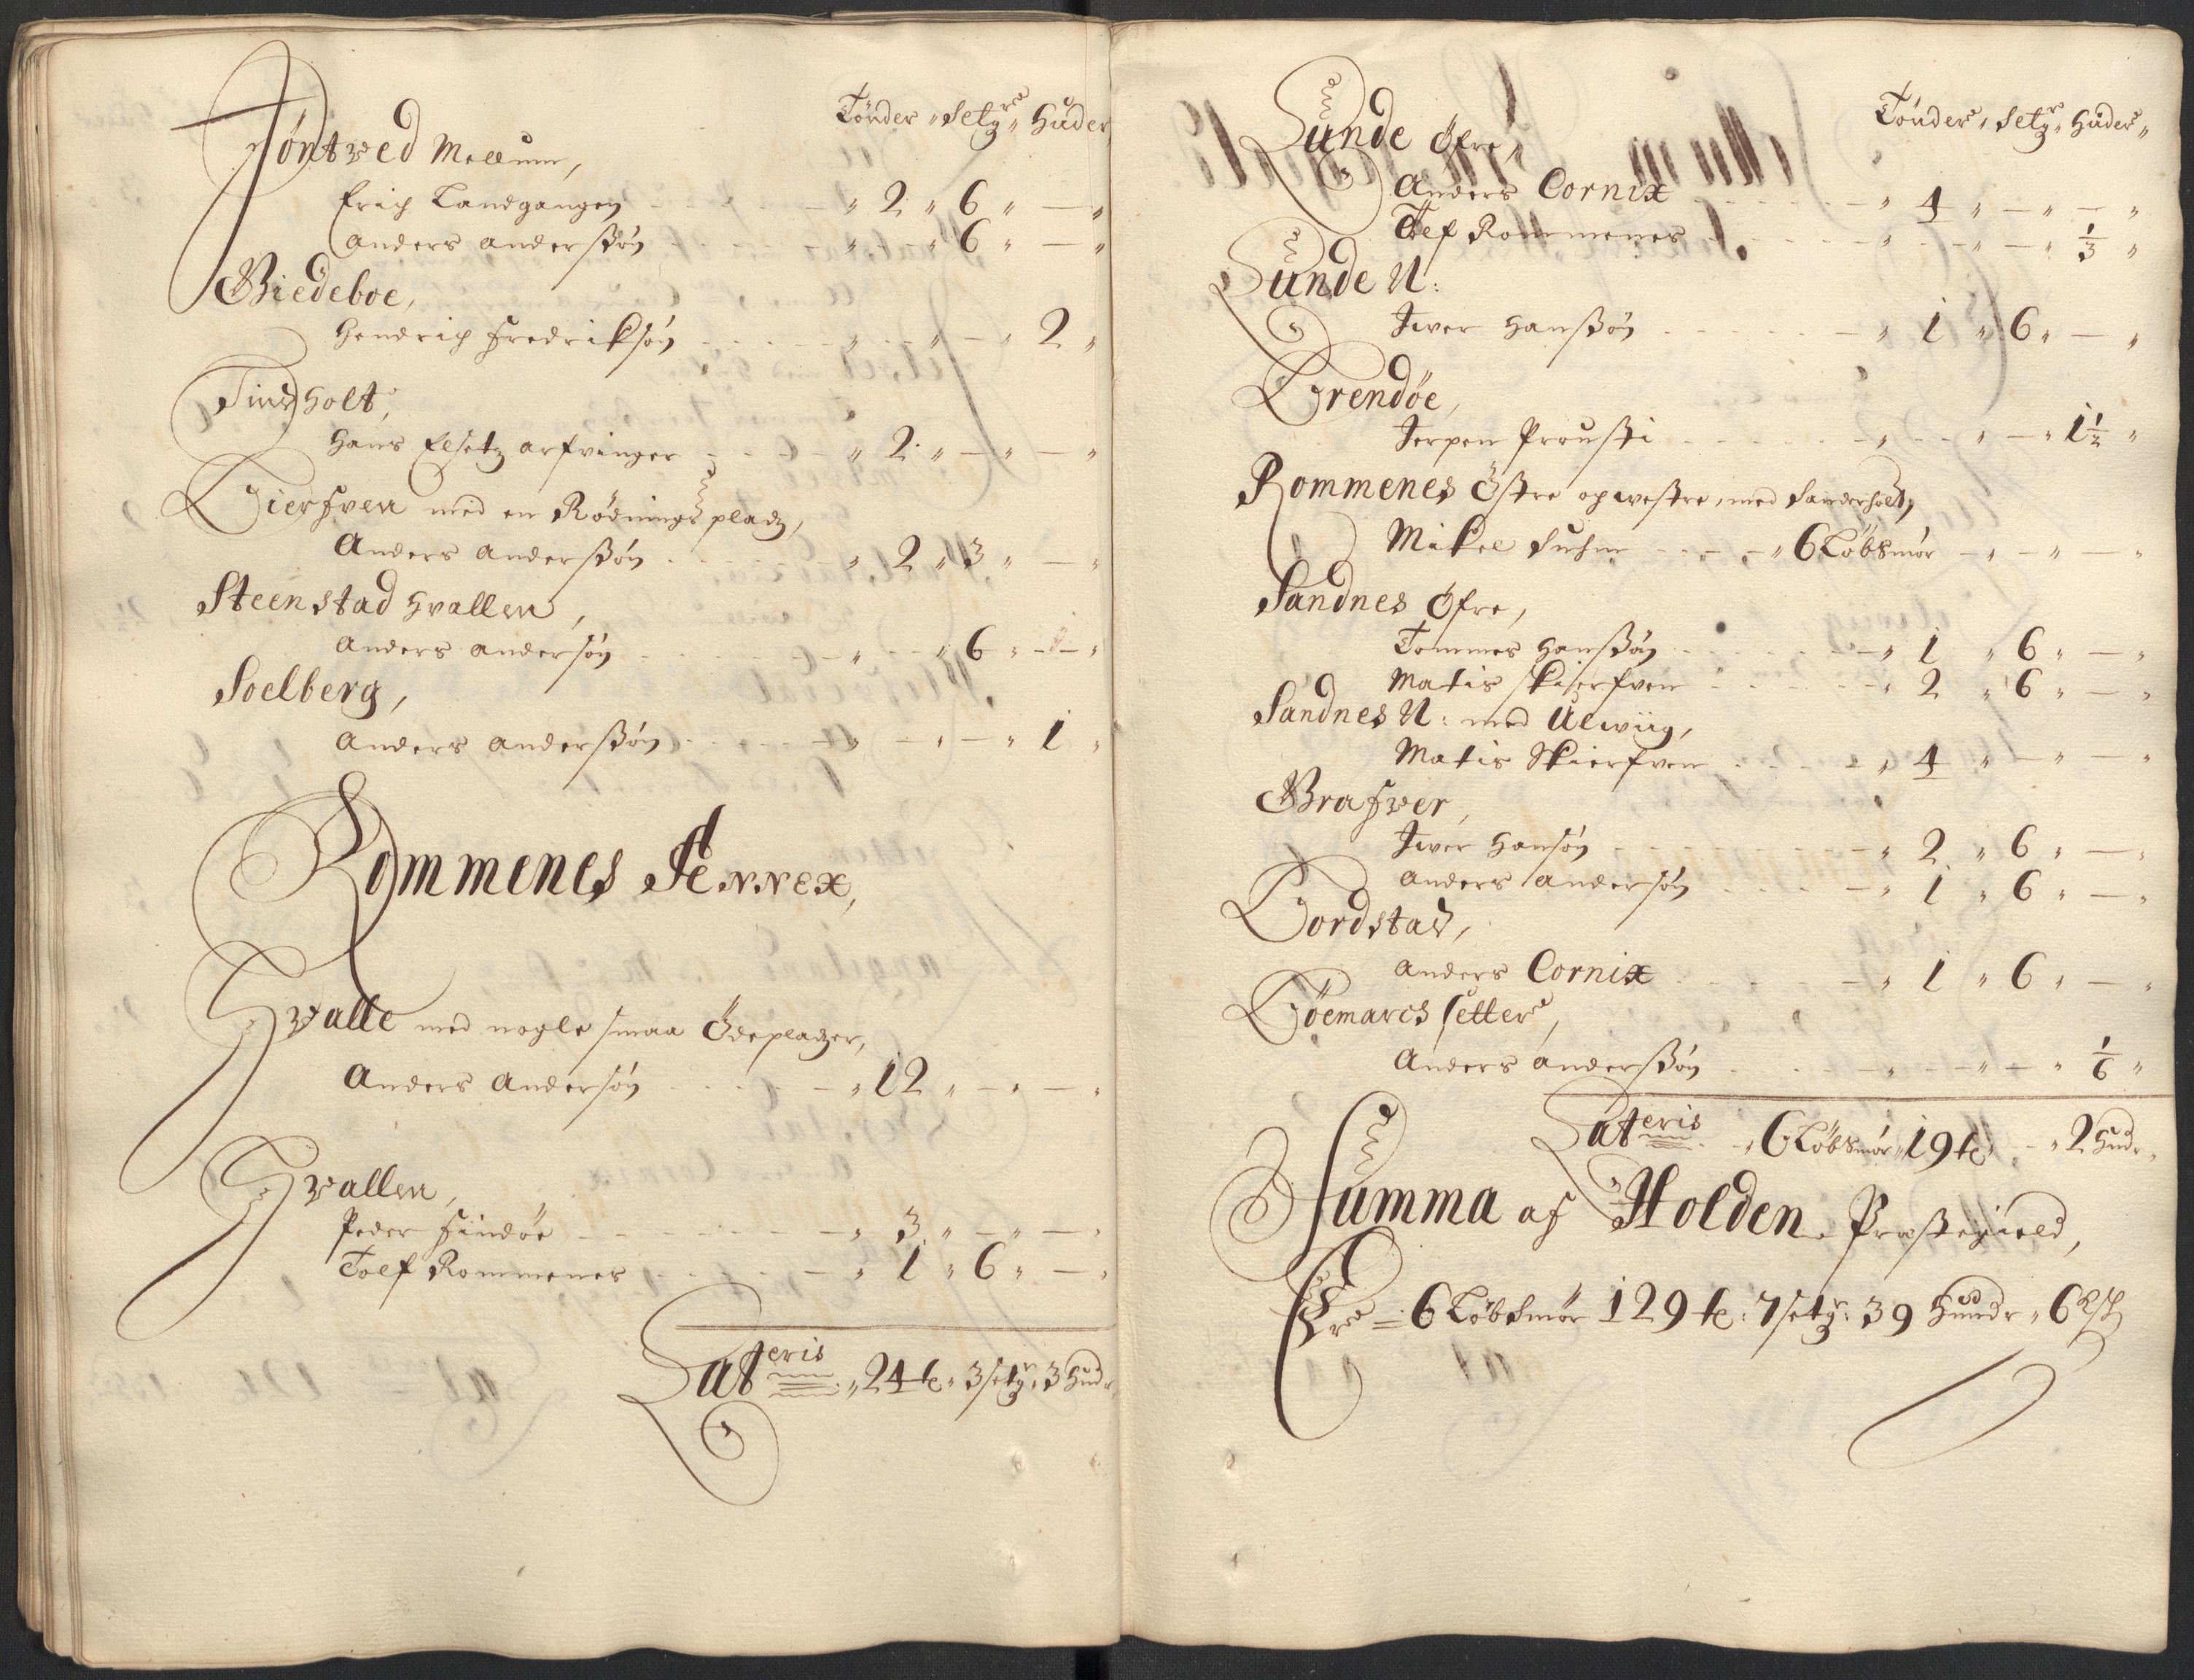 Tönder „ Setgr „ Huder
Töntved Mellum,
Erich Landgangen - - - „ 2 „ 6 „ — „
Anders Anderssøn - - - „ - „ 6 „ — „
Biedeboe,
Hendrich Fredriksøn - - - „ - „ — „ 2 „
Tindholt,
Hans Elsetz arfvinger - - - „ 2 „ — „ — „
Gierfven med en Rødnings pladz,
Anders Anderssøn - - - „ 2 „ 3 „ — „
Steenstad Hvallen,
Anders Andersøn - - - „ - „ 6 „ — „
Soelberg,
Anders Anderssøn - - - „ — „ — „ 1 „
Rommenes Annex,
Hvalle med nogle smaa Ödepladzer,
Anders Andersøn - - - „ 12 „ — „ — „
Hvallen,
Peder Findöe - - - „ 3 „ — „ — „
Tolf Rommenes - - - „ 1 „ 6 „ — „
Lateris „ 24 te „ 3 setgr „ 3 Hudr
Tönder „ Setgr „ Huder „
Sunde Öfre,
Anders Cornix - - - „ 4 „ — „ — „
Tolf Rommenes - - - „ - „ — „ 1/3 „
Sunde N:
Iver Hanssøn - - - „ 1 „ 6 „ — „
Grendöe,
Jerpen Prousti - - - „ - „ — „ 1 1/2 „
Rommenes Östre og westre, med Sanderholt,
Mikel Suhm - - - „ 6 Löbsmör — „ — „ — „
Sandnes Öfre,
Tommes Hanssøn - - - „ 1 „ 6 „ — „
Matis Skierfven - - - „ 2 „ 6 „ — „
Sandnes N: med Ulwiig,
Matis Skierfven - - - „ 4 „ — „ — „
Brafver,
Iver Hansøn - - - „ 2 „ 6 „ — „
Anders Andersøn - - - „ 1 „ 6 „ — „
Gordstad,
Anders Cornix - - - „ 1 „ 6 „ — „
Göemarcs setter,
Anders Anderssøn - - - „ — „ — „ 1/6 „
Lateris „ 6 Löbsmör „ 19 te „ — „ 2 Hudr „
Summa af Holden Præstegield,
Er = 6 Löbsmör 129 te: 7 setgr: 39 Hundr „ 6